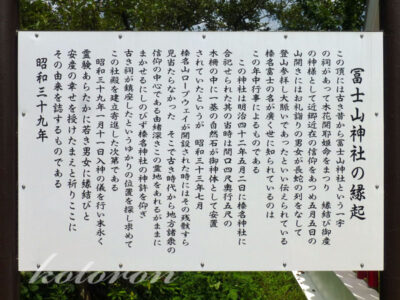 冨士山神社の縁起
この頂には古き昔から富士山神社という一宇
の祠があって木花開耶姫命をまつり 縁結び御産
の神様として近郷近在の信仰をあつめ五月五日の
山開きにはお礼詣りの男女が長蛇の列をなして
登山参拝し大賑いであったといい伝えられている
榛名富士の名が廣くせにしられているのは
この年中行事によるものである
この神社は明治四十二年五月二日に榛名神社に
合祀せられた其の当時は間口四尺奥行五尺の
木柵の中に一基の自然石が御神体として安置
されていたというが 昭和三十三年七月
榛名山ロープウェイが開設された時にはその残骸すら
見当たらなかった そこで古き時代から地方諸衆の
信仰の中心である由緒深きこの霊地をあれるがままに
まかせるにしのびず榛名神社の神許を仰ぎ
古き祠が鎮座したというゆかりの位置を探し求めて
この社殿を建立寄進した次第である
昭和三十九年一月十一日入神の儀を行い末永く
霊験あらたかに若き男女に縁結びと
安産の幸せを授けたまえと祈りここに
その由来を誌すものである
昭和三十九年
kotoron